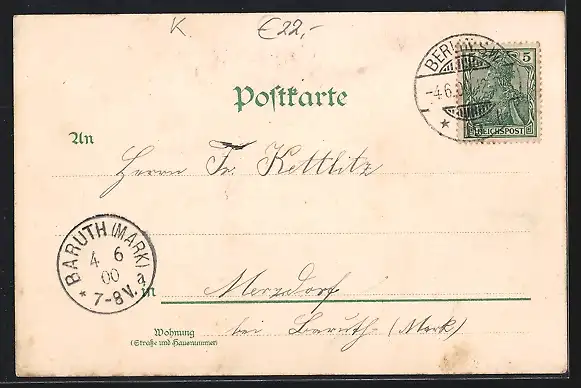 K €22,-
BERLIN S.W.
-4.6.0
5
REICHSPOST
Postkarte
An
Herrn Fr. Kettlitz
BARUTH (MARK)
4 6
00
* 7-8 V. a
in Merzdorf
Wohnung bei Baruth (Mark)
(Straße und Hausnummer)